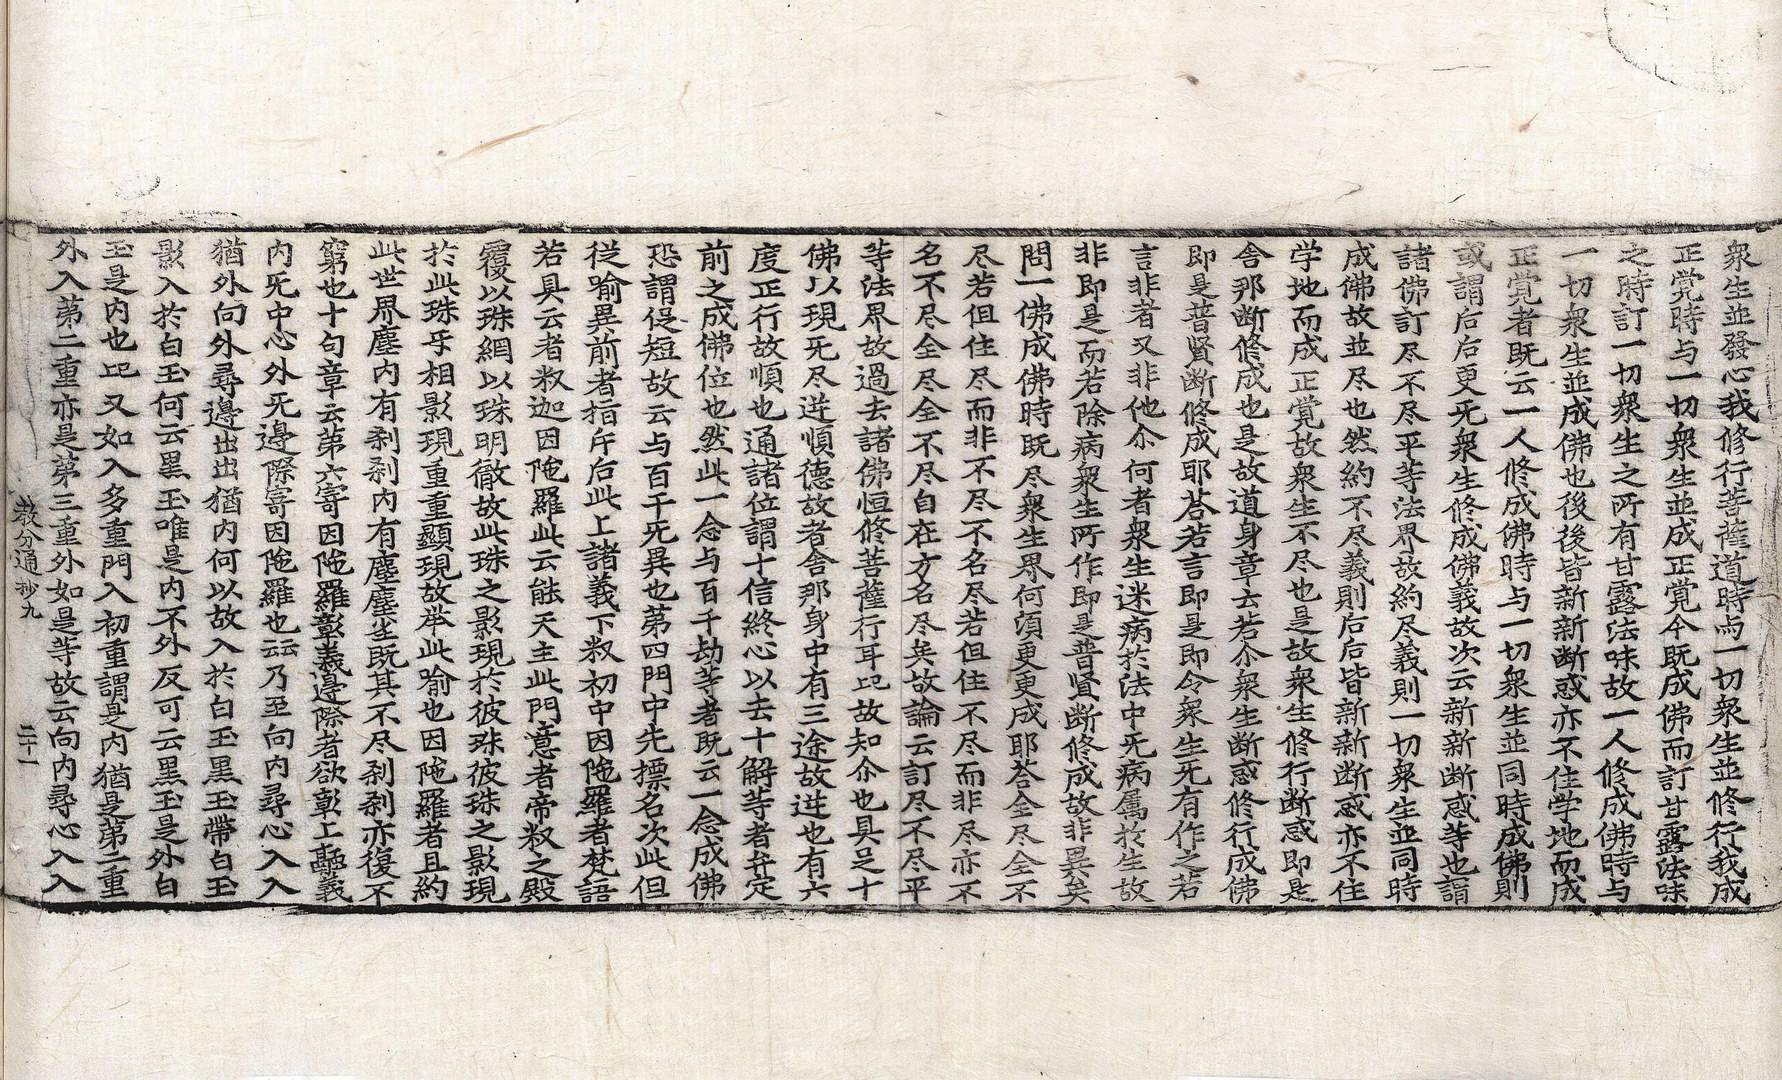 衆生並發心我修行菩薩道時与一切衆生並修行我成
正覺時与一切衆生並成正覺今既成佛而訂甘露法味
之時訂一切衆生之所有甘露法味故一人修成佛時与
一切衆生並成佛也後後皆新新断惑亦不住学地而成
正覺者既云一人修成佛時与一切衆生並同時成佛則
或謂后后更旡衆生修成佛義故次云新新断惑等也謂
諸佛訂尽不尽平等法界故約尽義則一切衆生並同時
成佛故並尽也然約不尽義則后后皆新新断惑亦不住
学地而成正覺故衆生不尽也是故衆生修行断惑即是
舎那断修成也是故道身章云若尒衆生断惑修行成佛
即是普賢断修成耶荅若言即是即令衆生旡有作之若
言非者又非他尒何者衆生迷病於法中旡病属於生故
非即是而若除病衆生所作即是普賢断修成故非異矣
問一佛成佛時既尽衆生界何須更更成耶荅全尽全不
尽若但住尽而非不尽不名尽若但住不尽而非尽亦不
名不尽全尽全不尽自在方名尽矣故論云訂尽不尽平
等法界故過去諸佛恒修菩薩行耳已故知尒也具足十
佛以現旡尽逆順德故者舎那身中有三途故逆也有六
度正行故順也通諸位謂十信終心以去十解等者弁定
前之成佛位也然此一念与百千劫等者既云一念成佛
恐謂促短故云与百千旡異也第四門中先摽名次此但
從喩異前者指斥后此上諸義下釈初中因陁羅者梵語
若具云者釈迦因陁羅此云能天主此門意者帝釈之殿
覆以珠網以珠明徹故此珠之影現於彼珠彼珠之影現
於此珠乎相影現重重顯現故举此喩也因陁羅者且約
此世界塵内有刹刹内有塵塵生既其不尽刹刹亦復不
窮也十句章云第六寄因陁羅彰義邊際者欲彰上驫義
内旡中心外旡邊際寄因陁羅也云云乃至向内尋心入入
猶外向外尋邊出出猶内何以故入於白玉黒玉帶白玉
影入於白玉何云黒玉唯是内不外反可云黒玉是外白
玉是内也已又如入多重門入初重謂是内猶是第二重
外入第二重亦是第三重外如是等故云向内尋心入入
教分通抄九 二十一